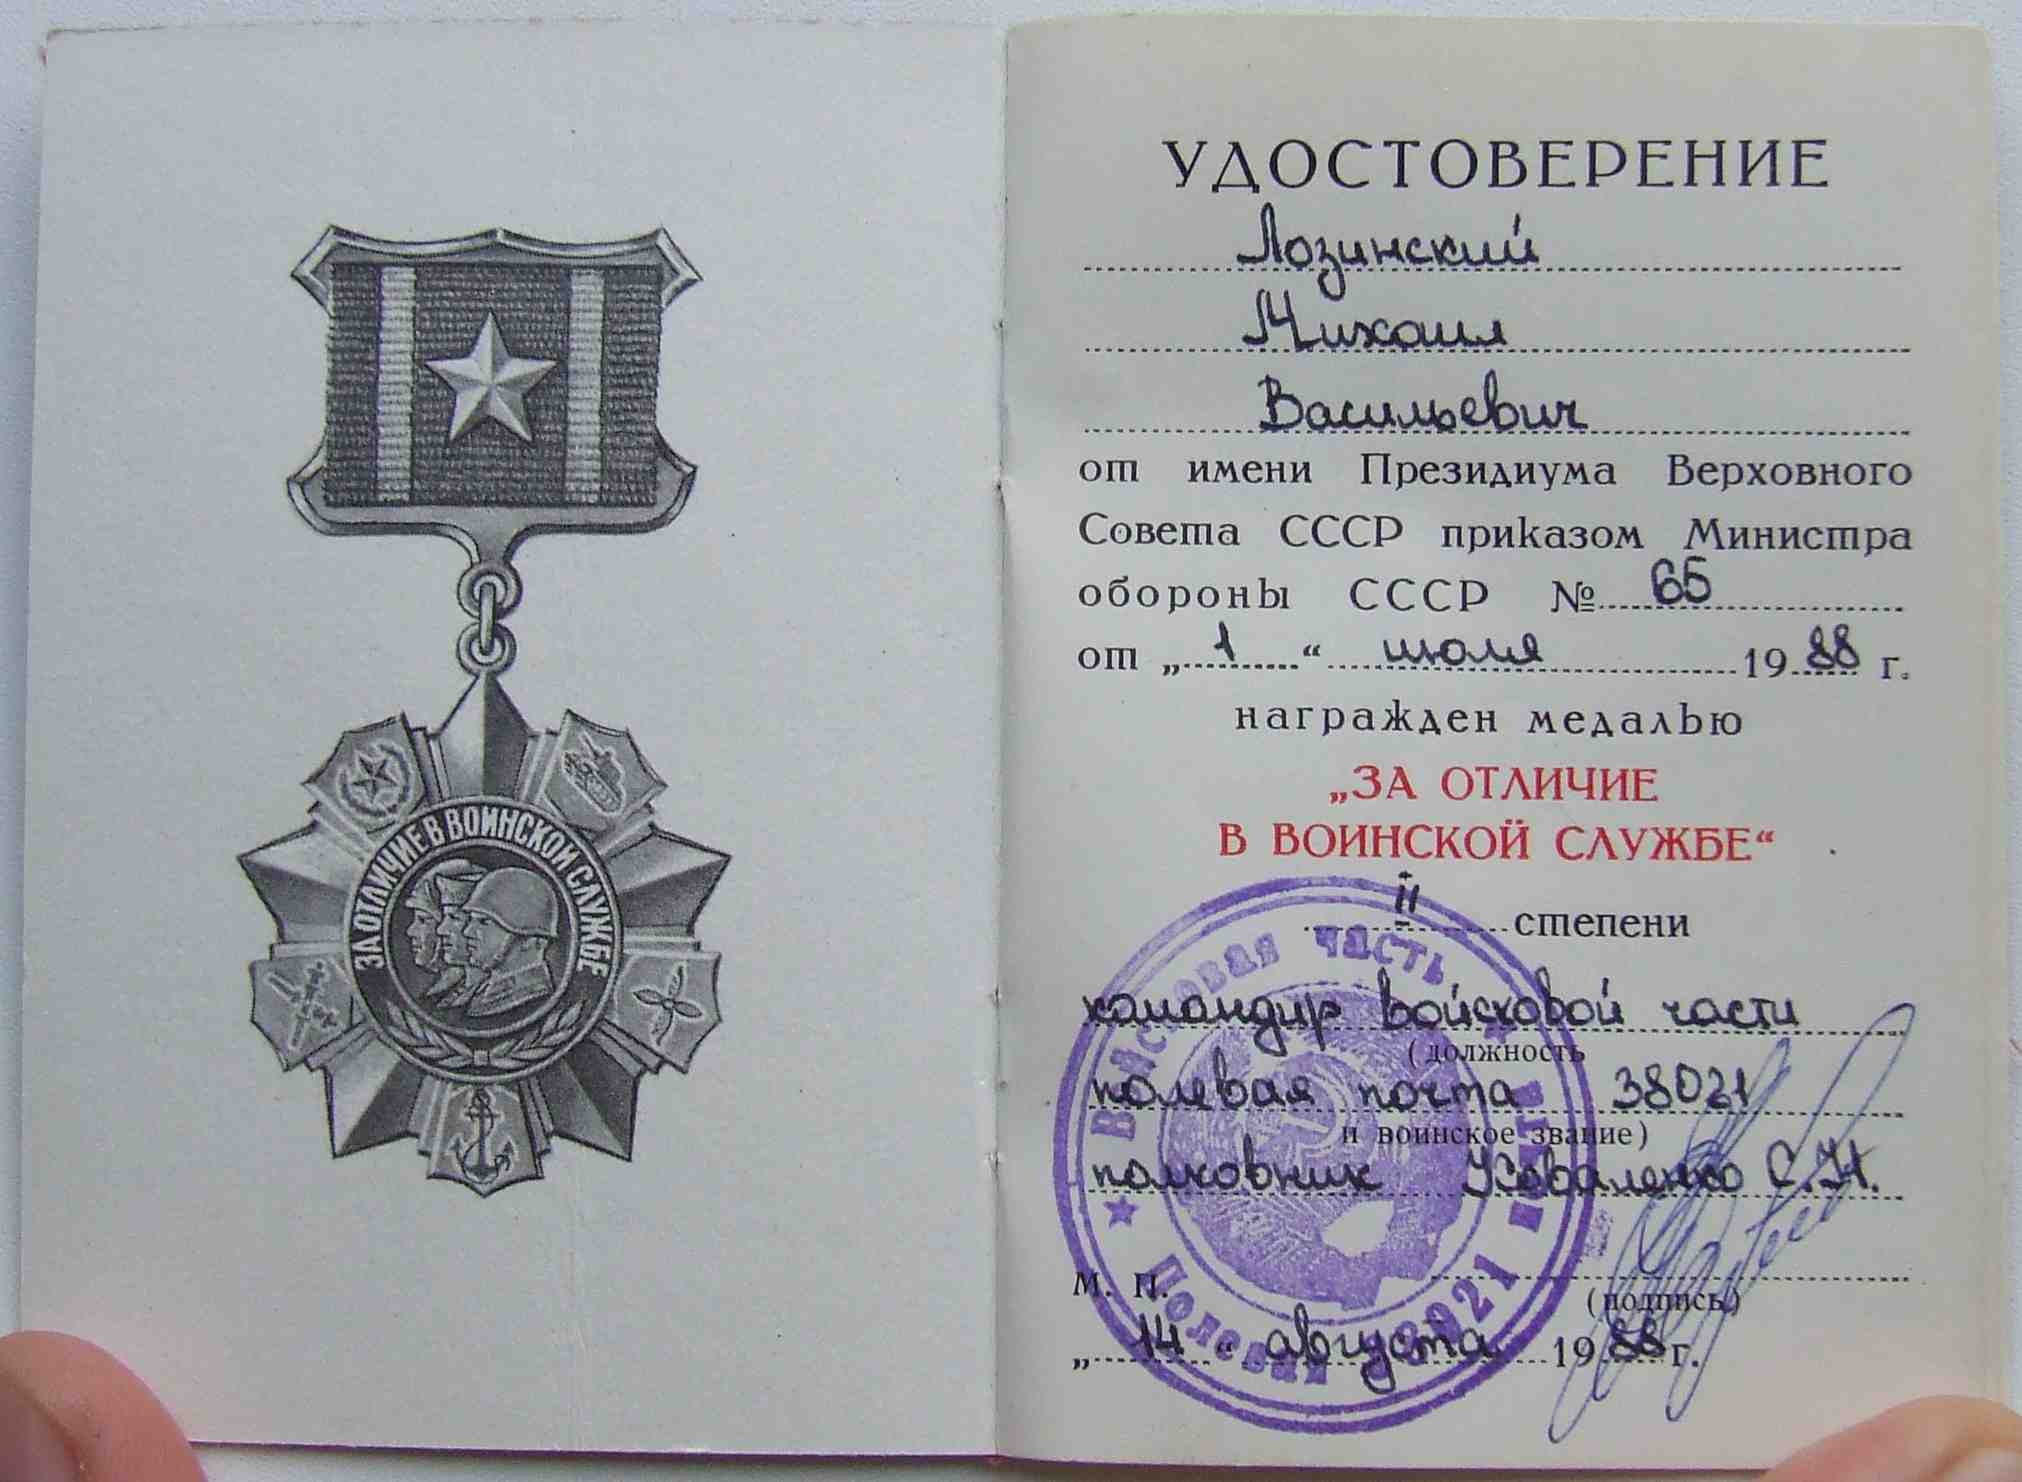 ЗА ОТЛИЧИЕ В ВОИНСКОЙ СЛУЖБЕ
УДОСТОВЕРЕНИЕ
Лозинский
Михаил
Васильевич
от имени Президиума Верховного
Совета СССР приказом Министра
обороны СССР № 65
от „1“ июля 1988 г.
награжден медалью
„ЗА ОТЛИЧИЕ
В ВОИНСКОЙ СЛУЖБЕ“
II степени
командир войсковой части
(должность
полевая почта 38021
и воинское звание)
полковник Коваленко С.Н.
М. П.
(подпись)
„14“ августа 1988 г.
Войсковая часть
Полевая почта 38021